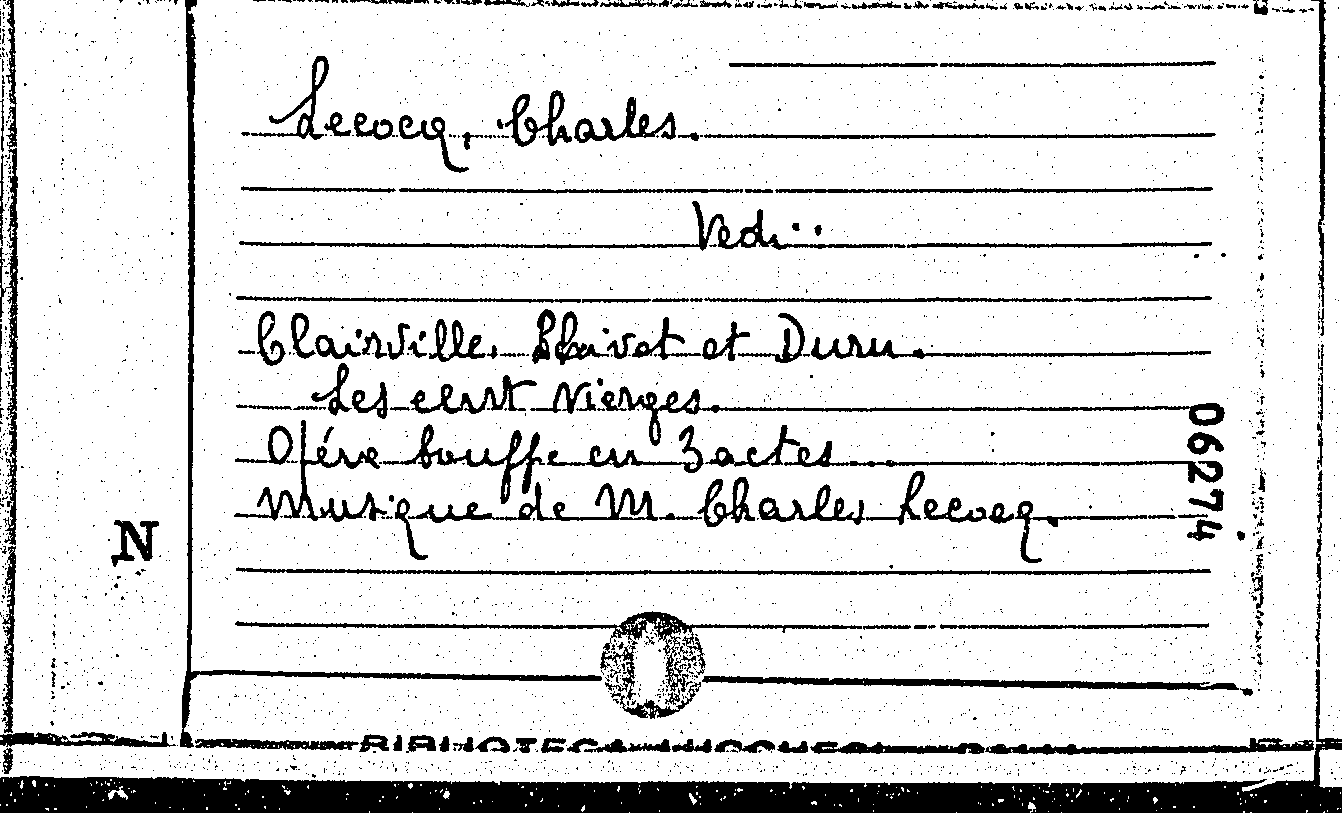 Lecocq, Charles.
Vedi:
Clairville, Chivot et Duru.
Les cent Vierges.
Opére bouffe en 3 actes...
Musique de M. Charles Lecocq.
06274
N
BIBLIOTECA